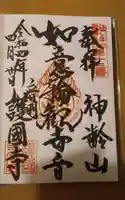 奉拝
神齢山
如意輪観世音
護國寺
令和四年
四月廿